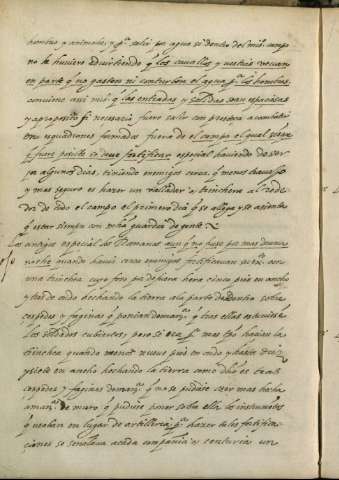 hombres y animales, y pª salir por agua si dentro del mis. campo
no la huviere advirtiendo q̃ los cavallos y bestias bevan
en parte q̃ no gasten ni enturbien el agua pª los hombres,
conviene assi mis.º q̃ las entradas y salidas sean espaciosas
y aproposito si necessario fuere salir con presteza a combatir
con esquadrones formados fuera del campo el qual
si fuere posible se deve fortificar especial haviendo de ser
por algunos dias, teniendo enemigos cerca, q̃ menos
y mas seguro es hazer un vallador o trinchera al rede
dor de todo el campo el primero dia q̃ se allega y se asienta
q̃ estar siempre con mcha guardia de gente.
Los antigos especial los Romanos aun q̃ no fuese por mas de una
noche quando havia cerca enemigos fortificavan
una trinchea cuyo foso por defuera hera cinco pies en ancho
y tres de ondo hechando la tierra a la parte de dentro sobre
cespedes y faginas q̃ ponian q̃ tras ellas estuviesen
los soldados cubiertos, pero si era pª mas tpo hazian la
trinchea quando menos nueve pies en ondo y hasta diez
y siete en ancho hechando la tierra como dho es tras
cespedes y faginas q̃ no se pudiese caer mas hecha
a man.ª de muro q̃ pudiese poner sobre ella los instrumentos
q̃ usavan en lugar de artilleria, pª hazer estas fortifica
ciones se señalava a cada compañia o centuria un